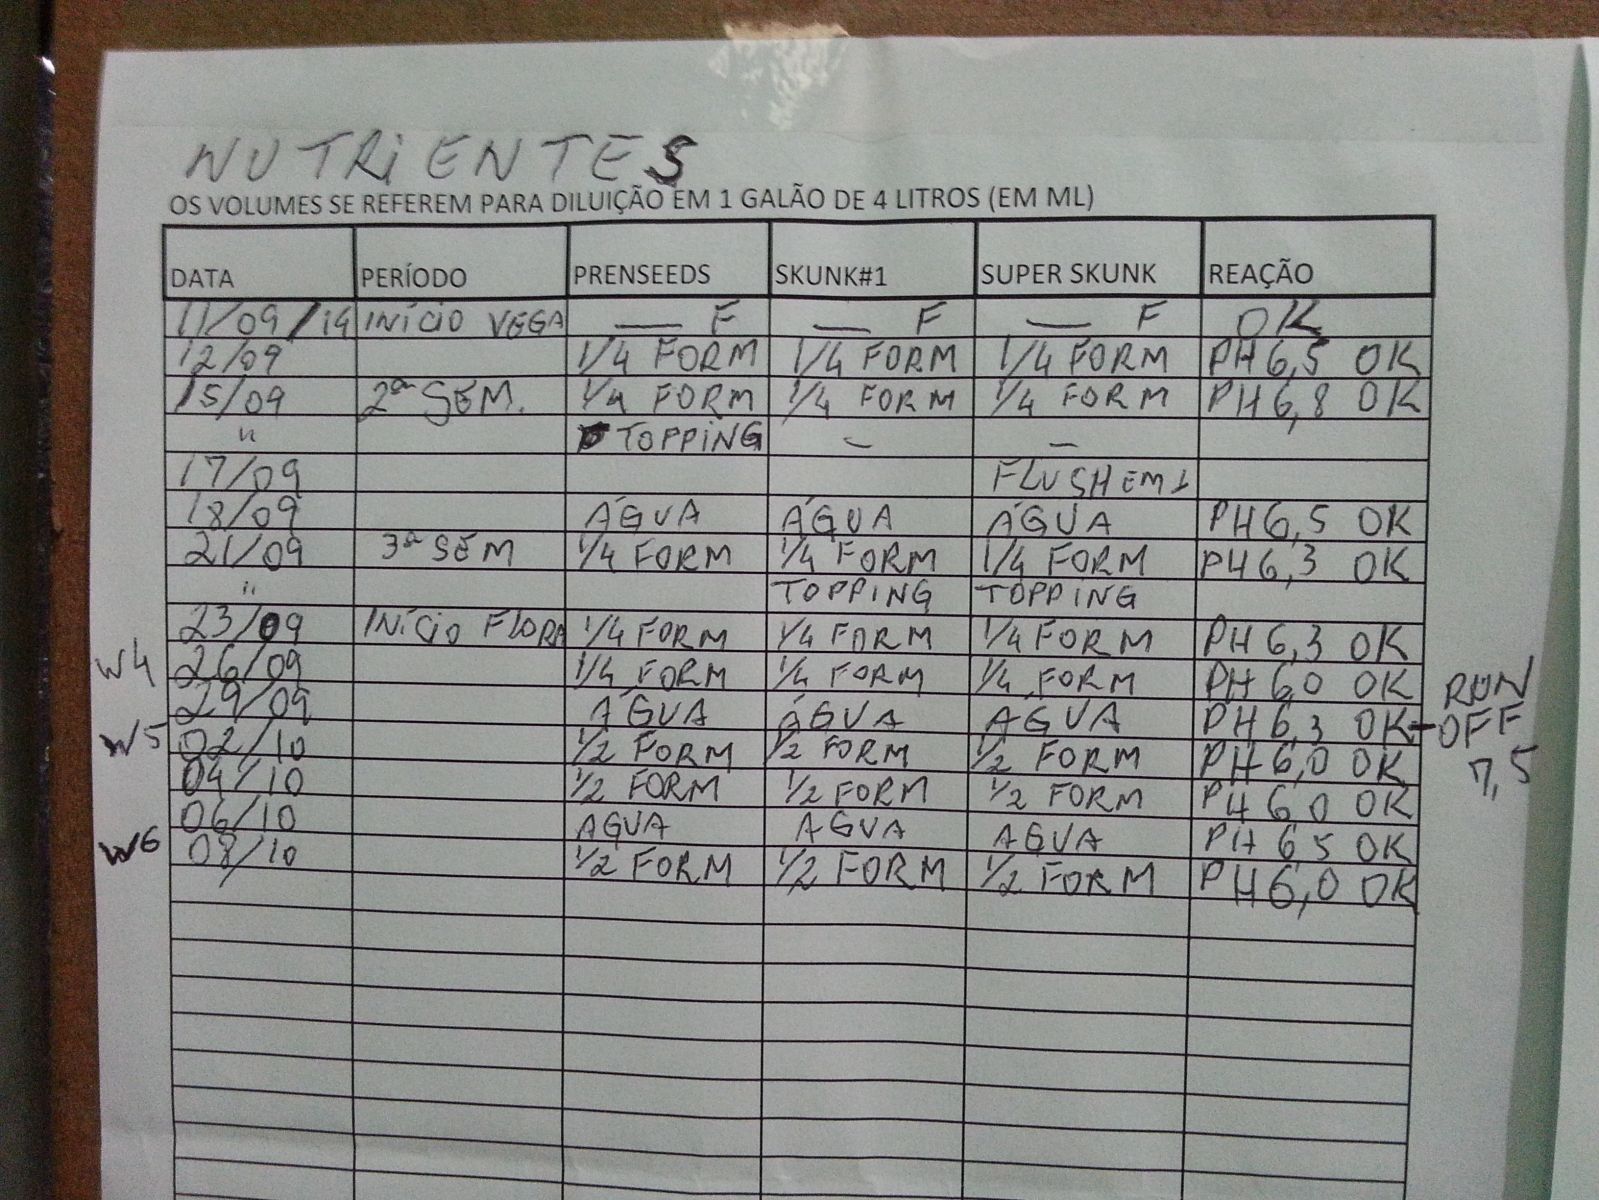 NUTRiENTES
OS VOLUMES SE REFEREM PARA DILUIÇÃO EM 1 GALÃO DE 4 LITROS (EM ML)
DATA PERÍODO PRENSEEDS SKUNK#1 SUPER SKUNK REAÇÃO
11/09/14 INÍCIO VEGA — F — F — F OK
12/09 1/4 FORM 1/4 FORM 1/4 FORM PH 6,5 OK
15/09 2ª SEM. 1/4 FORM 1/4 FORM 1/4 FORM PH 6,8 OK
" TOPPING — —
17/09 FLUSH EM 1
18/09 ÁGUA ÁGUA ÁGUA PH 6,5 OK
21/09 3ª SEM 1/4 FORM 1/4 FORM 1/4 FORM PH 6,3 OK
" TOPPING TOPPING
23/09 INÍCIO FLORA 1/4 FORM 1/4 FORM 1/4 FORM PH 6,3 OK
W4 26/09 1/4 FORM 1/4 FORM 1/4 FORM PH 6,0 OK
29/09 ÁGUA ÁGUA ÁGUA PH 6,3 OK - RUN OFF 7,5
W5 02/10 1/2 FORM 1/2 FORM 1/2 FORM PH 6,0 OK
04/10 1/2 FORM 1/2 FORM 1/2 FORM PH 6,0 OK
06/10 AGUA AGUA AGUA PH 6,5 OK
W6 08/10 1/2 FORM 1/2 FORM 1/2 FORM PH 6,0 OK